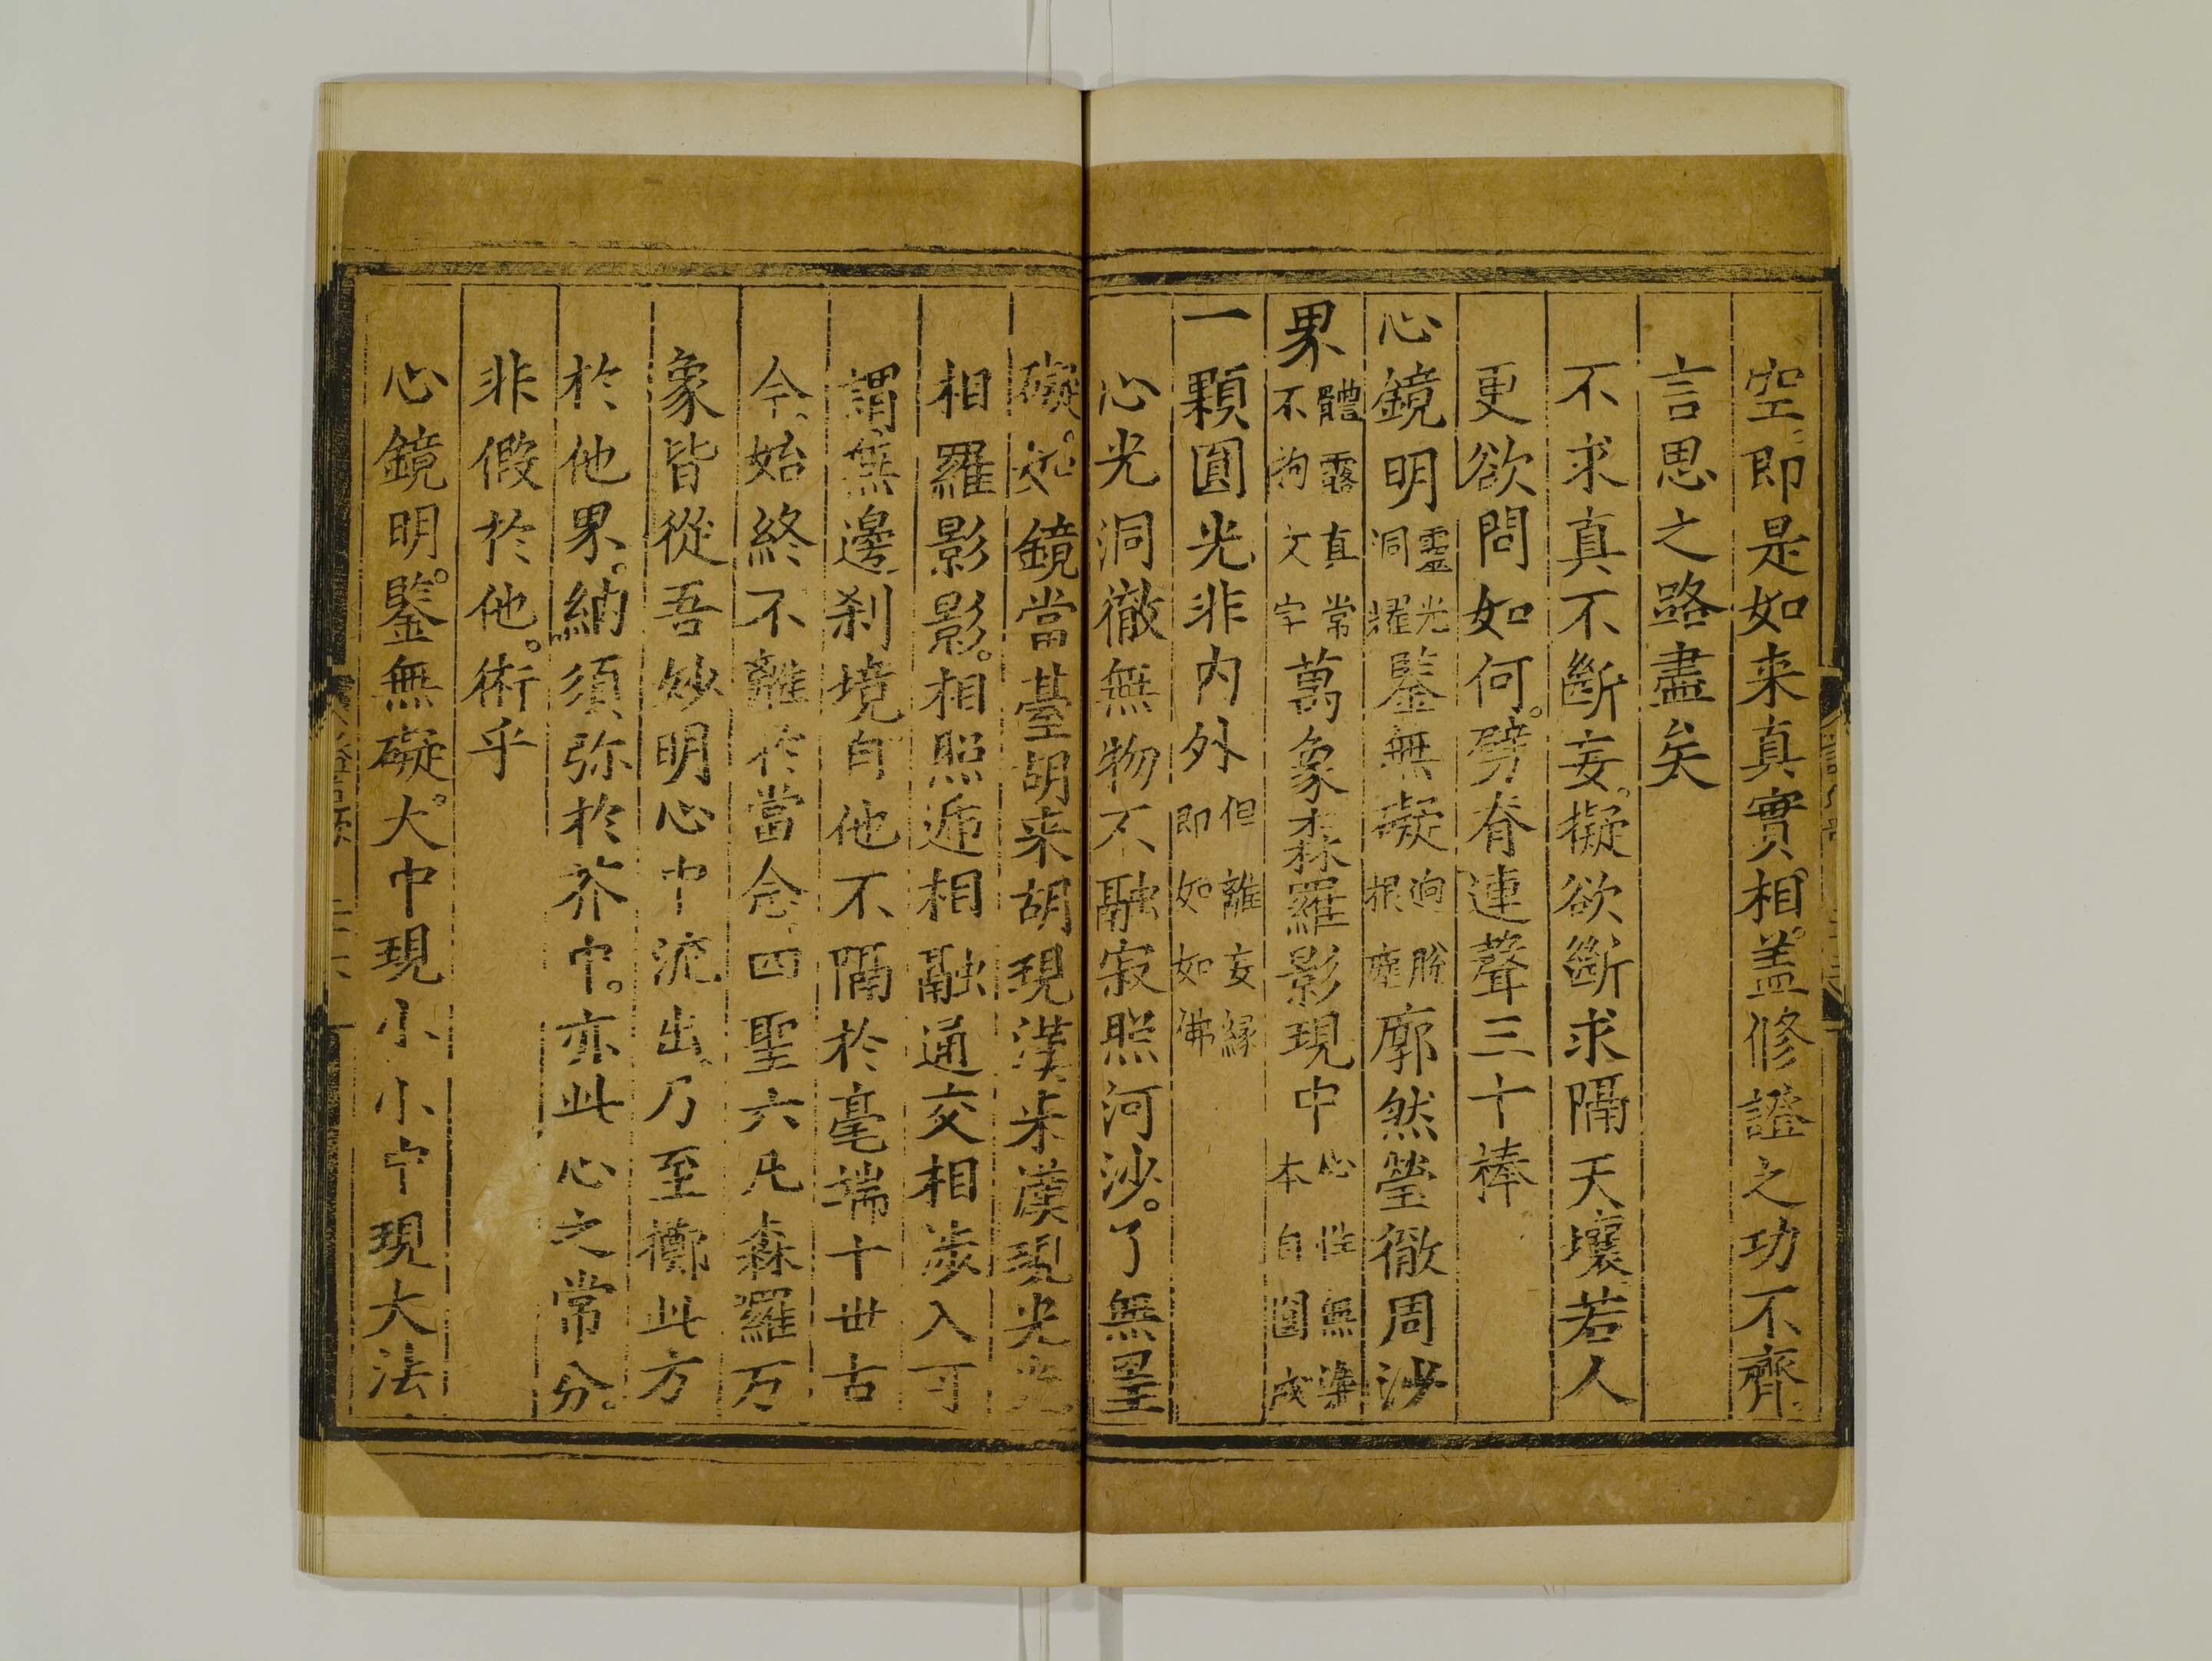 空即是如来真實。相。盖修證之功不齊
言思之路盡矣
不求真不斷妄。擬欲斷求隔天壤若人
更欲問如何。劈脊連聲三十棒
心鏡明靈光洞耀鑒無礙迥脫根塵廓然瑩徹周沙
界體露真常不拘文字萬象森羅影現中心性無染本自圓成
一顆圓光非内外但離妄緣即如如佛
心光洞徹無物不融寂照河沙。了無罣
礙。如鏡當臺胡来胡現漢来漢現光光
相羅影影。相照遞相融通交相涉入可
謂無邊刹境自他不隔於毫端十世古
今始終不離於當念四聖六凡森羅万
象皆從吾妙明心中流出乃至擲此方
於他界。納須弥於芥中。亦此心之常分。
非假於他。術乎
心鏡明。鑒無礙。大中現小小中現大法